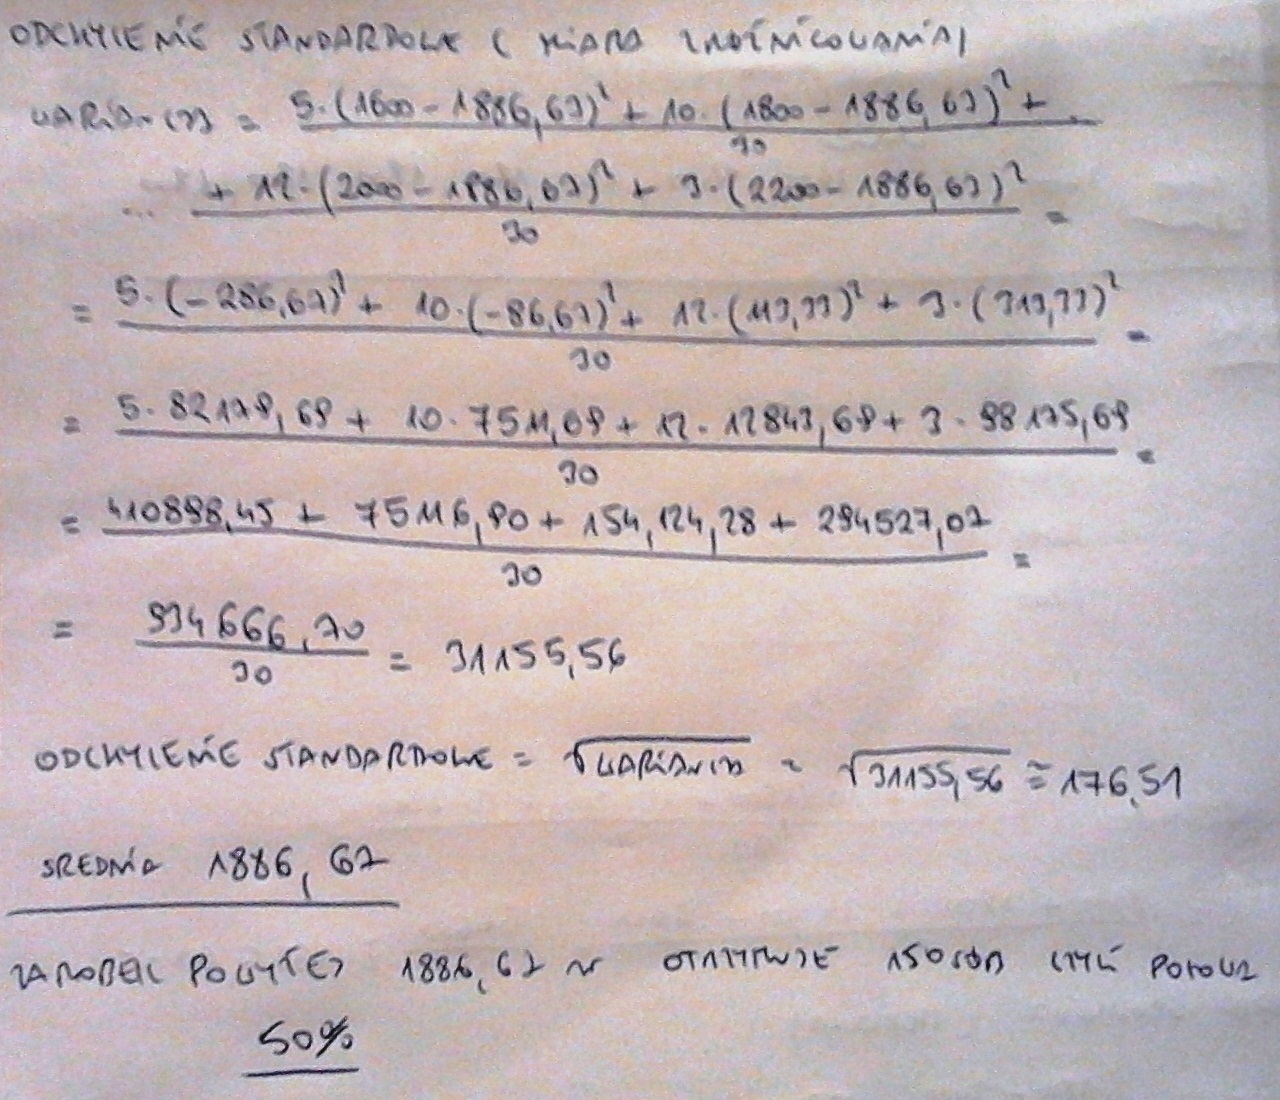 ODCHYLENIE STANDARDOWE (MIARA ZRÓŻNICOWANIA)
WARIANCJA = 5·(1600-1886,67)² + 10·(1800-1886,67)² +
30
... + 12·(2000-1886,67)² + 3·(2200-1886,67)² =
30
= 5·(-286,67)² + 10·(-86,67)² + 12·(113,33)² + 3·(313,33)² =
30
= 5·82179,69 + 10·7511,69 + 12·12843,69 + 3·98175,69 =
30
= 410898,45 + 75116,90 + 154,124,28 + 294527,07 =
30
= 934666,70 = 31155,56
30
ODCHYLENIE STANDARDOWE = √WARIANCJA = √31155,56 ≅ 176,51
ŚREDNIA 1886,67
ZAROBEK POWYŻEJ 1886,67 ZŁ OTRZYMUJE 15 OSÓB CZYLI POŁOWA
50%